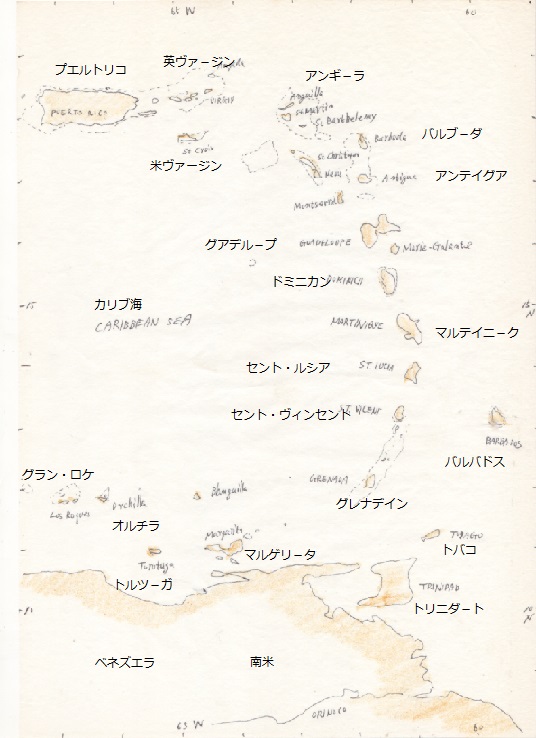 65 W
60
プエルトリコ
英ヴァージン
Anegada
アンギーラ
Anguilla
PUERTO RICO
VIRGIN
St Martin
St Barthelemy
バルブーダ
Barbuda
St Croix
米ヴァージン
St Christopher
Nevis
Antigua
アンテイグア
Montserrat
グアデループ
GUADELOUPE
Marie-Galante
ドミニカン
DOMINICA
15
カリブ海
CARIBBEAN SEA
15
N
MARTINIQUE
マルテイニーク
セント・ルシア
ST LUCIA
セント・ヴィンセント
BARBADOS
バルバドス
グラン・ロケ
Los Roques
Orchilla
Blanquilla
GRENADA
グレナデイン
オルチラ
Margarita
マルゲリータ
TOBAGO
トバコ
Tortuga
トルツーガ
TRINIDAD
トリニダート
10
N
ベネズエラ
南米
ORINOCO
65 W
60